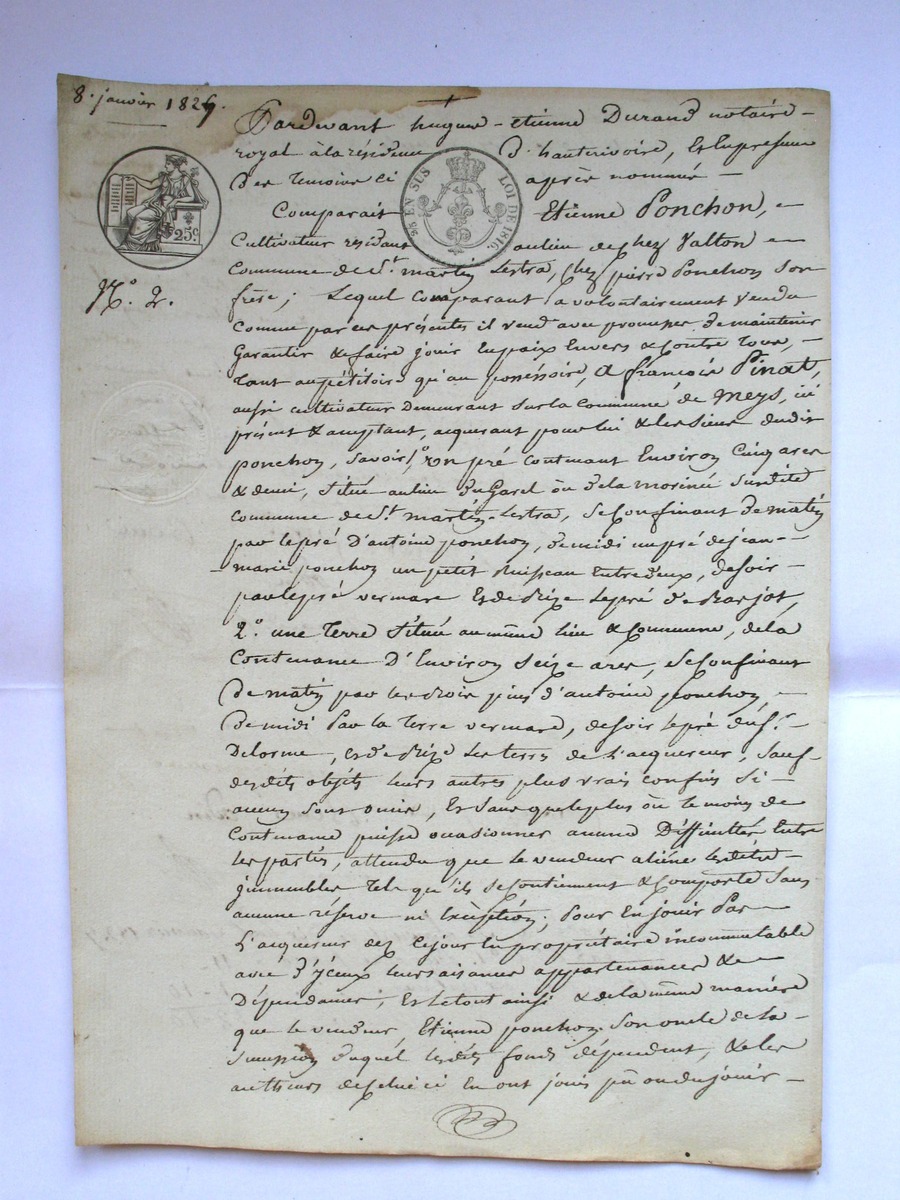 8. janvier 1829.
Pardevant hugues-etienne Durand notaire
royal à la résidence d'hauterivoire, Et En presence
Des Temoins Ci après nommés
Comparait Etienne Ponchon,
Cultivateur residant au lieu de chez Valton
Commune de St. martin Lestra, chez pierre Ponchon son
frère; Lequel comparant a volontairement Vendu
Comme par ces présentes il vend avec promesse De maintenir
Garantir & faire jouir En paix Envers & Contre Tous,
Tant au pétitoire qu'au possessoire, A françois Pinat,
aussi cultivateur Demeurant sur la Commune de Meys, ici
présent & acceptant, acquerant pour lui & les siens dudit
ponchon, savoir 1.° un pré Contenant Environ Cinq ares
& demi, situé au lieu Du Garel ou De la morinée susdite
Commune de St. martin-Lestra, se Confinant De matin
par le pré D'antoine ponchon, De midi un pré de jean-
marie ponchon un petit Ruisseau Entre deux, de soir
par le pré vermare Et de Bize le pré De Barjot,
2.° une Terre située au même lieu & Commune, de la
Contenance D'Environ seize ares, se Confinant
De matin par les bois pins d'antoine ponchon,
De midi Par la Terre vermare, de soir le pré du Sr.
Delorme, Et De Bize les terres de l'acquereur, sauf
desdits objets leurs autres plus vrais confins si
aucuns sont omis, Et sans que le plus ou le moins de
Contenance puisse occasionner aucune Difficultés Entre
les parties, attendu que le vendeur aliène lesdits
jmmeubles Tels qu'ils se Contiennent & Comporte sans
aucune réserve ni Exception; Pour En jouir Par
L'acquereur dez ce jour En propriétaire incommutable
avec D'yceux leurs aisances appartenances &
Dépendances, Et le tout ainsi & de la même manière
que le vendeur Etienne ponchon son oncle de la
succession Duquel lesdits fonds dépendent, & les
autheurs de celui ci En ont joui pu ou du jouir
N.° 2.
25c.
25c EN SUS
LOI DE 1816.